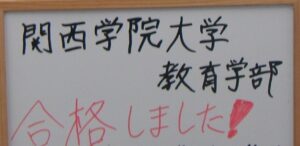 関西学院大学
教育学部
合格しました!